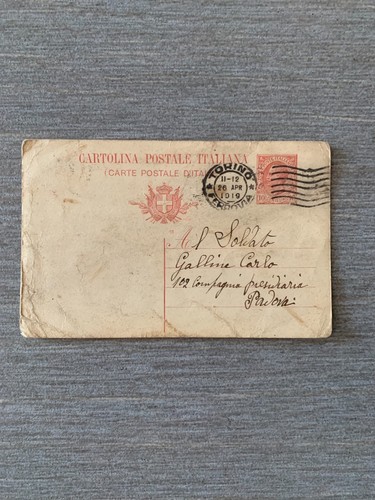 CARTOLINA POSTALE ITALIANA
(CARTE POSTALE D'ITALIE)
TORINO
11-12
26 APR
1919
FERROVIA
Al Soldato
Galline Carlo
102 Compagnia presidiaria
Padova